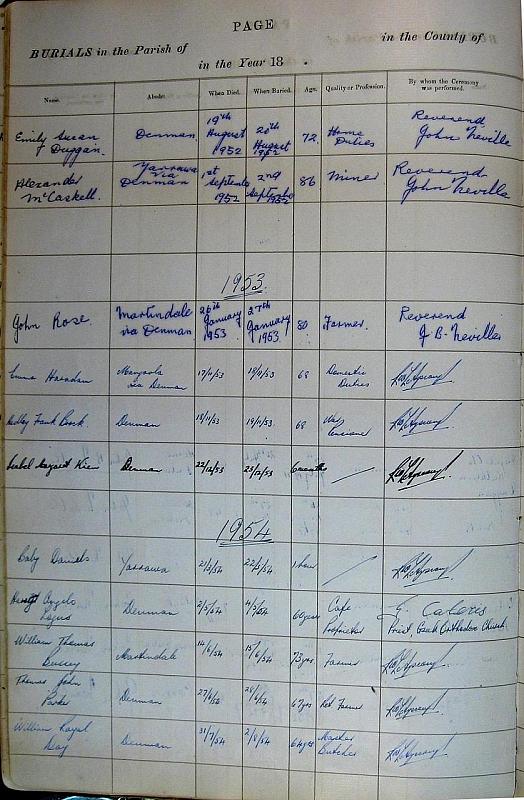 PAGE
BURIALS in the Parish of in the County of
in the Year 18 .
Name. Abode. When Died. When Buried. Age. Quality or Profession. By whom the Ceremony was performed.
Emily Susan Duggan. Denman 19th August 1952 20th August 1952 72 Home Duties Reverend John Neville
Alexander McCaskell. Yarrawa via Denman 1st September 1952 2nd September 1952 86 Miner Reverend John Neville
1953
John Rose. Martindale via Denman 26th January 1953 27th January 1953. 80 Farmer. Reverend J B. Neville
Emma via Denman 17/11/53 18/11/53 68 Domestic Duties
Frank Denman 18/11/53 19/11/53 68 War Pensioner
Isabel Margaret Denman 22/12/53 23/12/53 6 months
1954
Baby Daniels Yarrawa 21/2/54 22/2/54 1 hour
Angelo Denman 2/5/54 4/5/54 60 years Cafe Proprietor Priest Greek Orthodox Church.
William Thomas Martindale 14/6/54 15/6/54 73 yrs Farmer
Thomas John Parker Denman 27/6/54 28/6/54 67 yrs Ret Farmer
William Royal Day Denman 31/7/54 2/8/54 64 yrs Master Butcher